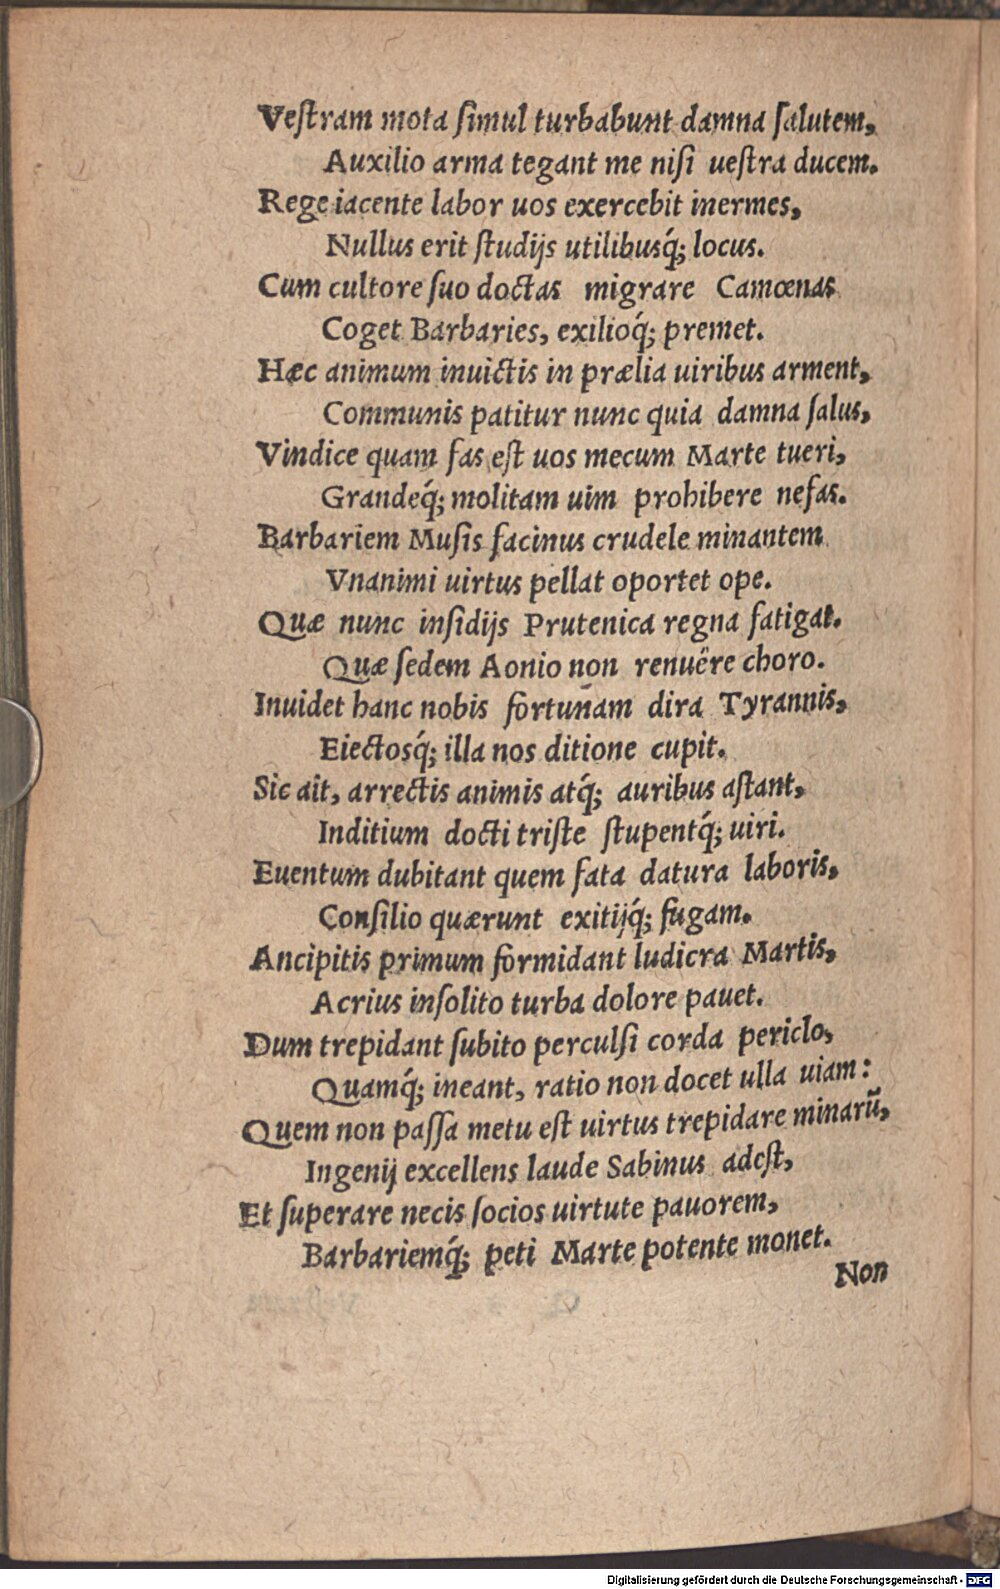 Veſtram mota ſimul turbabunt damna ſalutem,
Auxilio arma tegant me niſi ueſtra ducem.
Rege iacente labor uos exercebit inermes,
Nullus erit ſtudijs utilibusq́; locus.
Cum cultore ſuo doctas migrare Camœnas
Coget Barbaries, exilioq́; premet.
Hæc animum inuictis in prælia uiribus arment,
Communis patitur nunc quia damna ſalus,
Vindice quam fas eſt uos mecum Marte tueri,
Grandeq́; molitam uim prohibere nefas.
Barbariem Muſis facinus crudele minantem
Vnanimi uirtus pellat oportet ope.
Quæ nunc inſidijs Prutenica regna fatigat.
Quæ ſedem Aonio non renuêre choro.
Inuidet hanc nobis fortunam dira Tyrannis,
Eiectosq́; illa nos ditione cupit.
Sic ait, arrectis animis atq́; auribus aſtant,
Inditium docti triſte ſtupentq́; uiri.
Euentum dubitant quem fata datura laboris,
Conſilio quærunt exitijq́; fugam.
Ancipitis primum formidant ludicra Martis,
Acrius inſolito turba dolore pauet.
Dum trepidant ſubito perculſi corda periclo,
Quamq́; ineant, ratio non docet ulla uiam:
Quem non paſſa metu eſt uirtus trepidare minarũ,
Ingenij excellens laude Sabinus adeſt,
Et ſuperare necis ſocios uirtute pauorem,
Barbariemq́; peti Marte potente monet.
Non
Digitalisierung gefördert durch die Deutsche Forschungsgemeinschaft - DFG